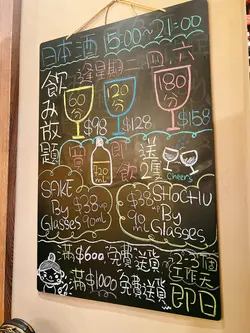 日本酒 15:00~21:00
飲み放題
逢星期二、四、六
60分 $98
120分 $128
180分 $158
買 720 即飲 送
Cheers
SAKE By Glasses $38up 90ml
SHOCHU By Glasses $38up 90ml
滿$600 免費送貨 2-3個工作天
滿$1000 免費送貨 即日